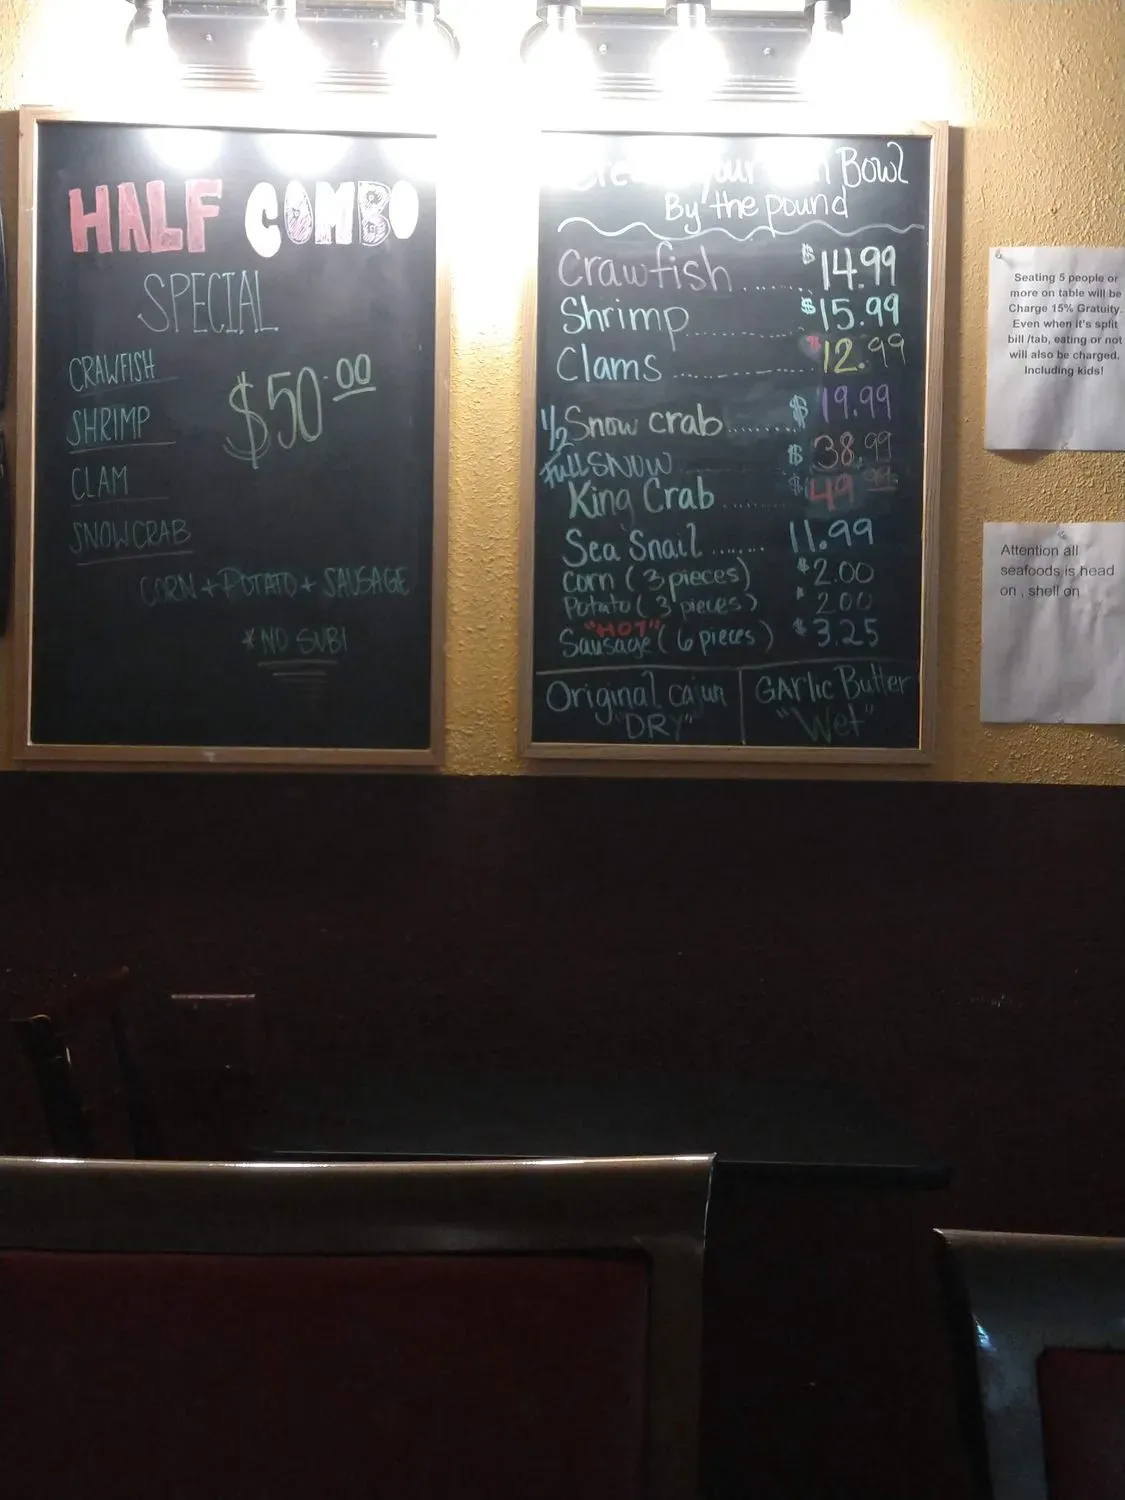 HALF COMBO
SPECIAL
CRAWFISH
SHRIMP
CLAM
SNOWCRAB
$50.00
CORN + POTATO + SAUSAGE
*NO SUB!
Create your own Bowl
By the pound
Crawfish ....... $14.99
Shrimp ....... $15.99
Clams ....... $12.99
1/2 Snow crab ....... $19.99
Full SNOW ....... $38.99
King Crab ....... $49.99
Sea Snail ....... 11.99
corn (3 pieces) $2.00
Potato (3 pieces) $2.00
"HOT"
Sausage (6 pieces) $3.25
Original cajun
"DRY"
GARlic Butter
"Wet"
Seating 5 people or
more on table will be
Charge 15% Gratuity.
Even when it's split
bill /tab, eating or not
will also be charged.
Including kids!
Attention all
seafoods is head
on , shell on